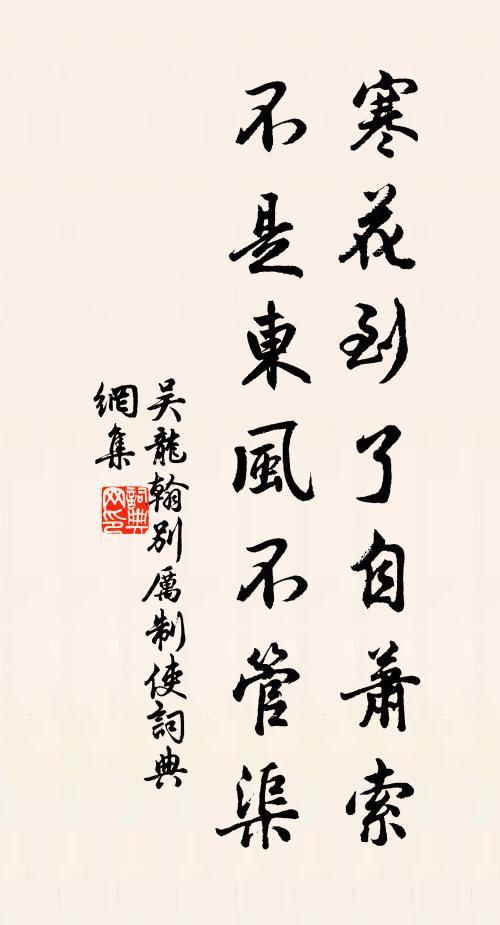 寒花到了自蕭索
不是東風不管渠
吳龍翰別厲制使詞典
網集
詞典
网印